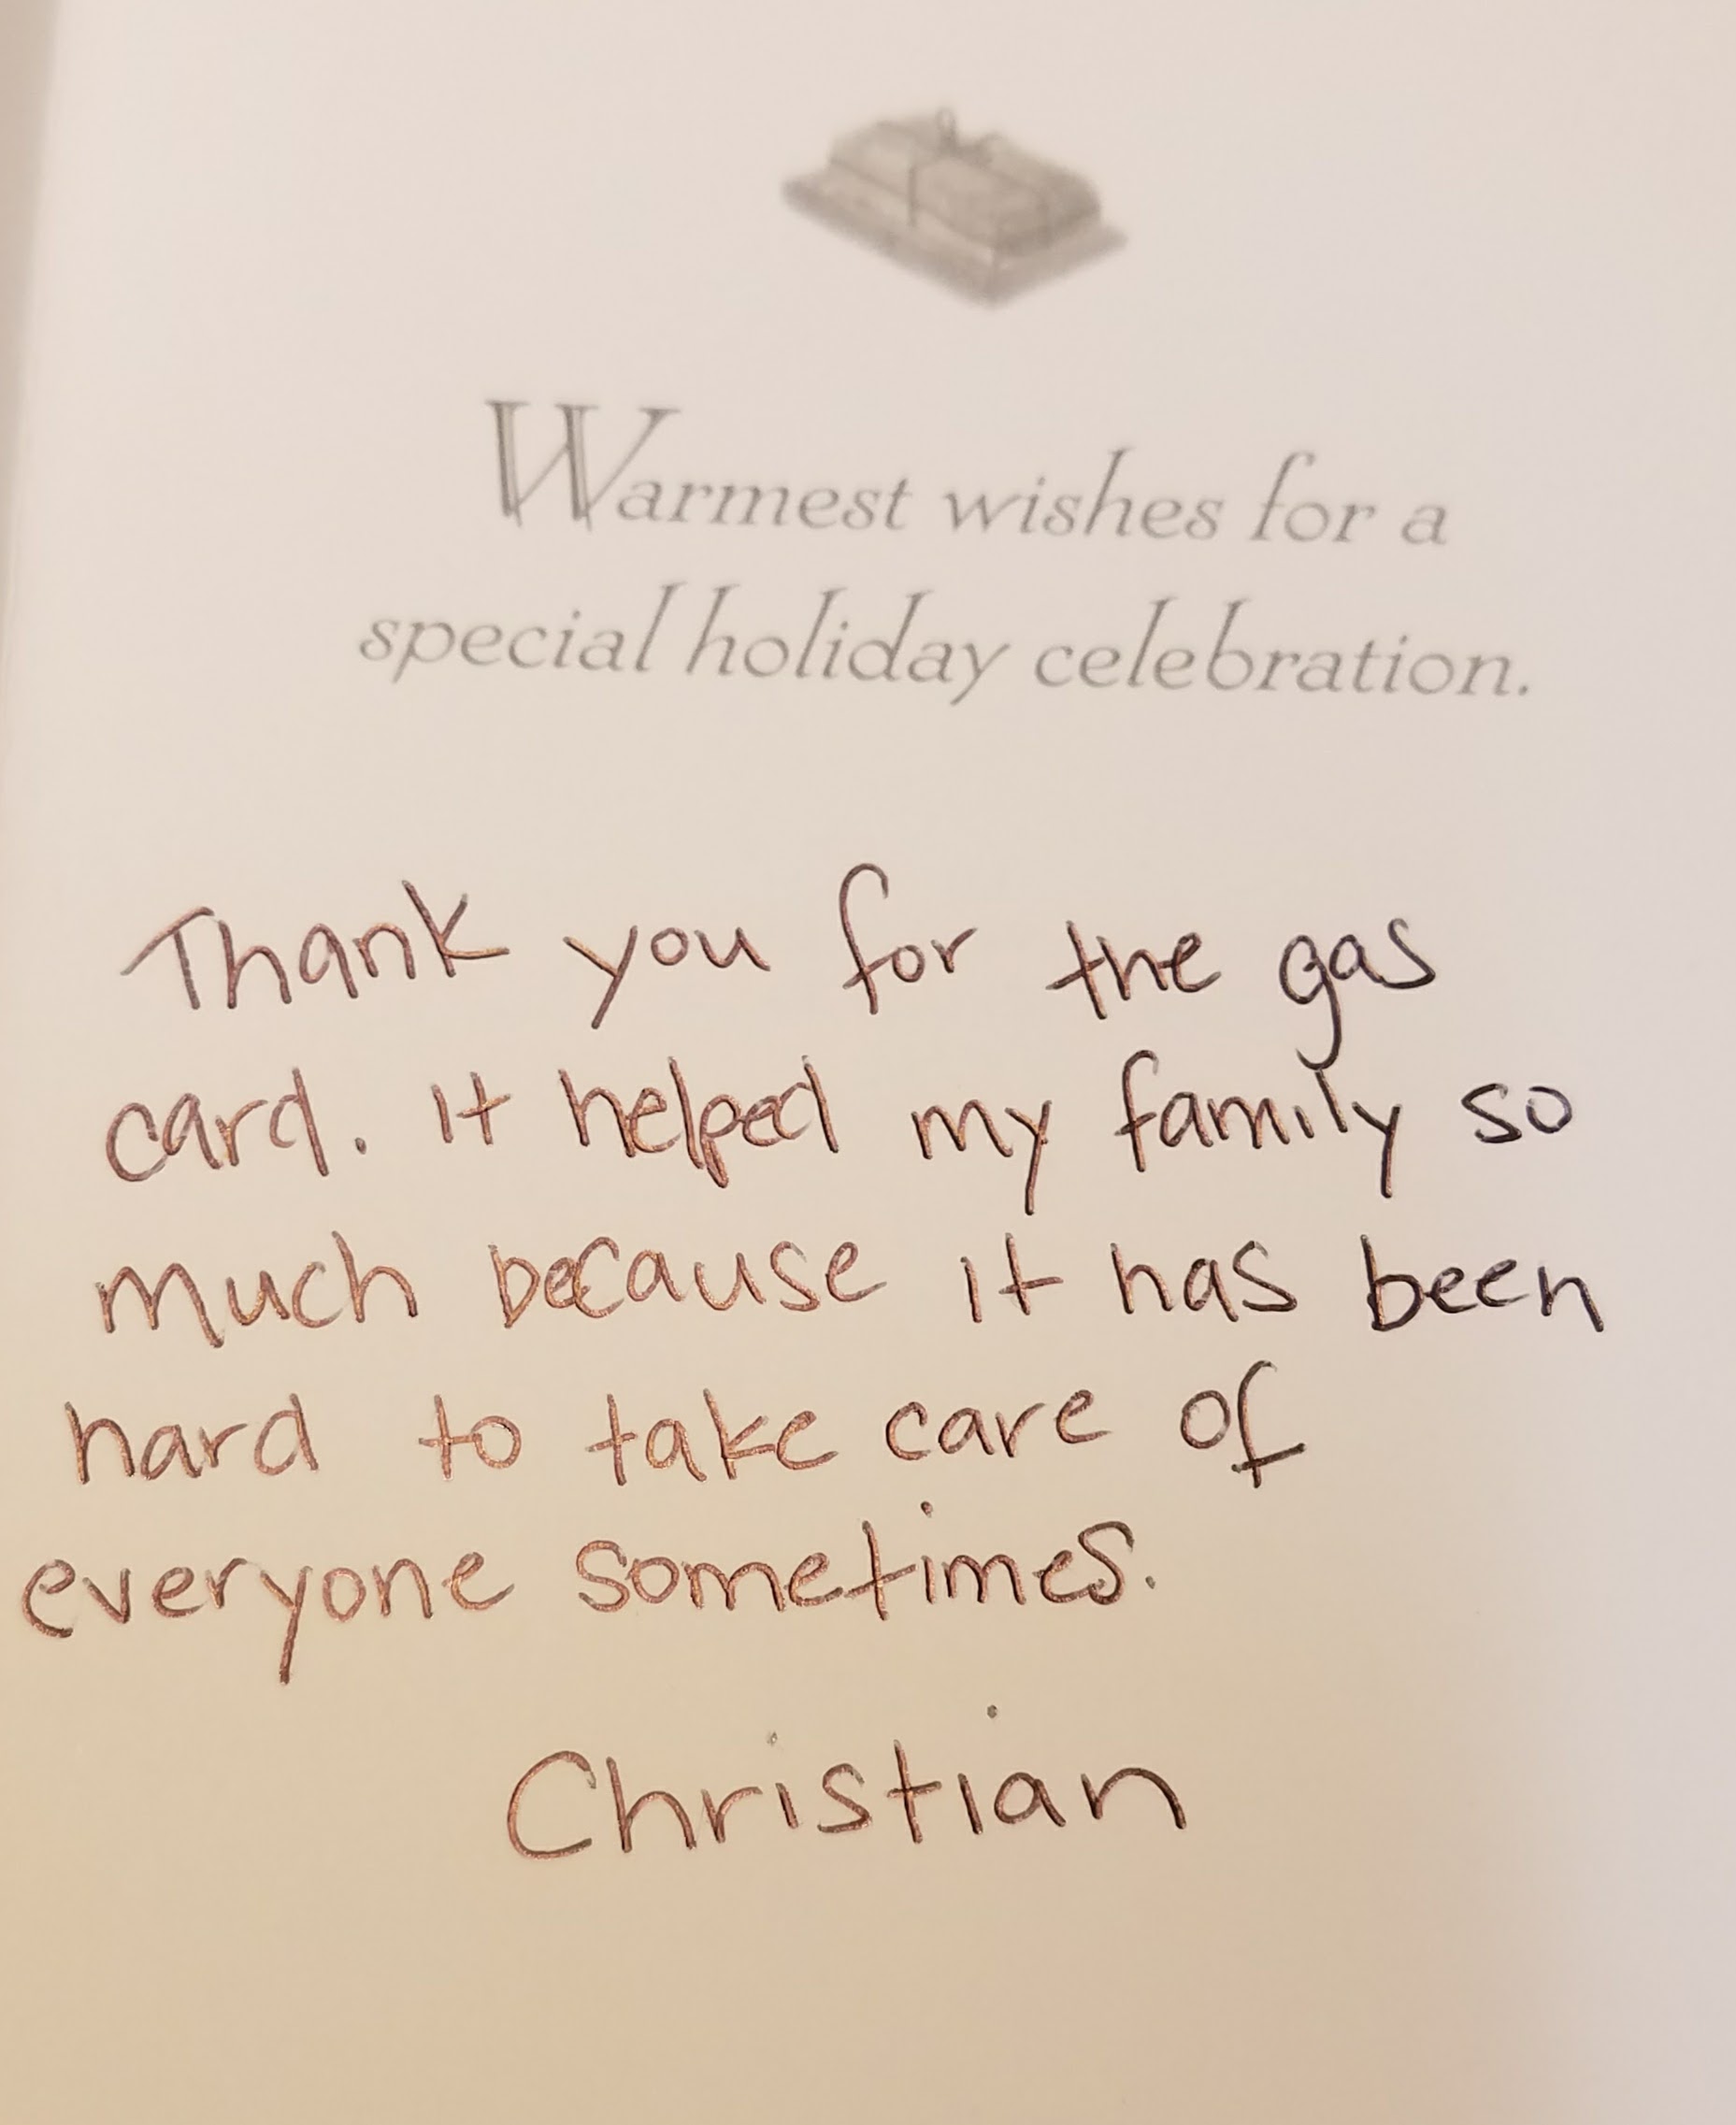 Warmest wishes for a
special holiday celebration.
Thank you for the gas
card. It helped my family so
much because it has been
hard to take care of
everyone sometimes.
Christian